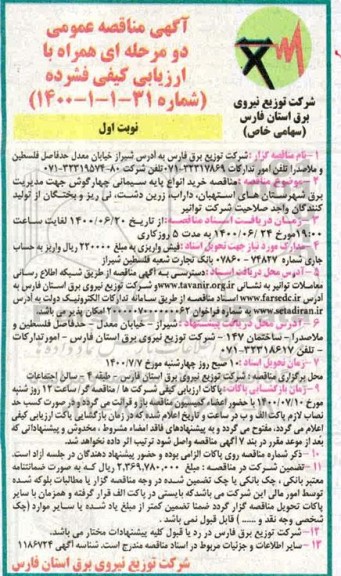 آگهی مناقصه عمومی
دو مرحله ای همراه با
ارزیابی کیفی فشرده
(شماره ۳۱-۱-۱-۱۴۰۰)
نوبت اول
شرکت توزیع نیروی
برق استان فارس
(سهامی خاص)
۱-نام مناقصه گزار: شرکت توزیع برق فارس به آدرس شیراز خیابان معدل حدفاصل فلسطین
و ملاصدرا تلفن امور تدارکات ۳۲۳۱۷۸۶۹-۰۷۱ تلفن شرکت ۸۰-۳۲۳۱۹۵۷۴-۰۷۱
۲- موضوع مناقصه: مناقصه خرید انواع پایه سیمانی چهارگوش جهت مدیریت
برق شهرستان های استهبان، داراب، زرین دشت، نی ریز و بختگان از تولید
کنندگان واجد صلاحیت شرکت توانیر
۳- زمان دریافت اسناد مناقصه: از تاریخ ۱۴۰۰/۰۶/۲۰ لغایت ساعت
۱۹:۰۰ مورخ ۱۴۰۰/۰۶/۲۴ به مدت ۵ روزکاری
۴- مدارک مورد نیاز جهت تحویل اسناد: فیش واریزی به مبلغ ۲۲۰۰۰۰ ریال واریز به حساب
جاری شماره ۷۴۸۲۷-۰۷۸۶۰ بانک تجارت شعبه فلسطین شیراز
۵- آدرس محل دریافت اسناد: دسترسی به آگهی مناقصه از طریق شبکه اطلاع رسانی
معاملات توانیر به نشانی www.tavanir.org.ir و شرکت توزیع برق استان فارس به
آدرس www.farsedc.ir اسناد مناقصه از طریق سامانه تدارکات الکترونیک دولت به آدرس
www.setadiran.ir به شماره فراخوان امکان پذیر می باشد
۶- آدرس محل دریافت پیشنهاد: شیراز - خیابان معدل - حدفاصل فلسطین و
ملاصدرا- ساختمان ۱۴۷ - شرکت توزیع نیروی برق استان فارس - امور تدارکات
- تلفن ۳۲۳۱۸۶۱۷-۰۷۱
۷- زمان تحویل اسناد: ۱۰ صبح روز چهارشنبه مورخ ۱۴۰۰/۷/۷
محل برگزاری مناقصه: شرکت توزیع نیروی برق استان فارس - طبقه ۴ - سالن اجتماعات
۹- زمان بازگشایی پاکات: پاکات ارزیابی کیفی شرکت ها / مناقصه گر/ ساعت ۱۲ روز شنبه
مورخ ۱۴۰۰/۰۷/۱۰ با حضور اعضاء کمیسیون مناقصه باز و قرائت می گردد و در صورت کسب حد
نصاب لازم پاکت الف و ب در ساعت و تاریخ اعلام شده که در زمان بازگشایی پاکت ارزیابی کیفی
اعلام می گردد، مفتوح می گردد و به پیشنهادهای فاقد امضاء مشروط ، مخدوش و پیشنهاداتی که
بعد از موعد مقرر در بند ۷ آگهی مناقصه واصل شود ترتیب اثر داده نخواهد شد.
۱۰- ذکر شماره مناقصه روی پاکات الزامی بوده و حضور پیشنهاد دهندگان در جلسه آزاد است.
۱۱- تضمین شرکت در مناقصه : مبلغ ۲,۳۶۹,۷۸۰,۰۰۰ ریال که به صورت ضمانتنامه
معتبر بانکی ، چک بانکی یا چک تضمین شده در وجه مناقصه گزار یا مطالبات بلوکه شده
توسط امور مالی این شرکت می باشد که بایستی در پاکت الف قرار گرفته و همزمان با سایر
پاکات تحویل مناقصه گزار گردد ضمنا تضمین کمتر از مبلغ یاد شده یا سایر موارد (چک
شخصی وجه نقد و ......) قابل قبول نمی باشد .
۱۲- شرکت توزیع برق فارس در رد یا قبول کلیه پیشنهادات مختار می باشد.
۱۳- سایر اطلاعات و جزئیات مربوط در اسناد مناقصه مندرج است. شناسه آگهی ۱۱۸۶۷۲۴
شرکت توزیع نیروی برق استان فارس